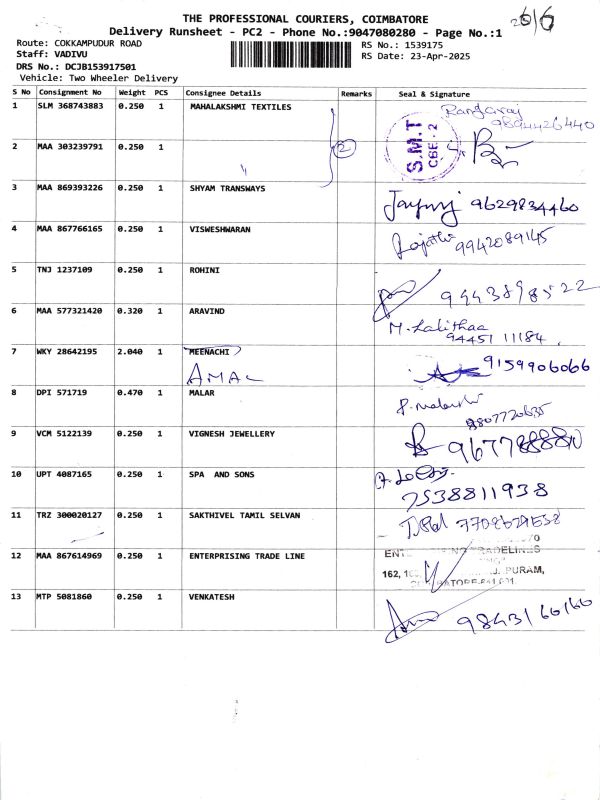 THE PROFESSIONAL COURIERS, COIMBATORE
Delivery Runsheet - PC2 - Phone No.:9047080280 - Page No.:1
Route: COKKAMPUDUR ROAD
RS No.: 1539175
Staff: VADIVU
RS Date: 23-Apr-2025
DRS No.: DCJB153917501
Vehicle: Two Wheeler Delivery
S No Consignment No Weight PCS Consignee Details Remarks Seal & Signature
1 SLM 368743883 0.250 1 MAHALAKSHMI TEXTILES
9894426440
2 MAA 303239791 0.250 1 " 2 S.M.T CBE-2
3 MAA 869393226 0.250 1 SHYAM TRANSWAYS 9629834460
4 MAA 867766165 0.250 1 VISWESHWARAN 9942089145
5 TNJ 1237109 0.250 1 ROHINI 9443898522
6 MAA 577321420 0.320 1 ARAVIND M. Lalithaa
94451 11184
7 WKY 28642195 2.040 1 MEENACHI 9159906066
AMAL
8 DPI 571719 0.470 1 MALAR
9 VCM 5122139 0.250 1 VIGNESH JEWELLERY
10 UPT 4087165 0.250 1 SPA AND SONS
7538811938
11 TRZ 300020127 0.250 1 SAKTHIVEL TAMIL SELVAN
12 MAA 867614969 0.250 1 ENTERPRISING TRADE LINE
162, PURAM,
13 MTP 5081860 0.250 1 VENKATESH 9843160160